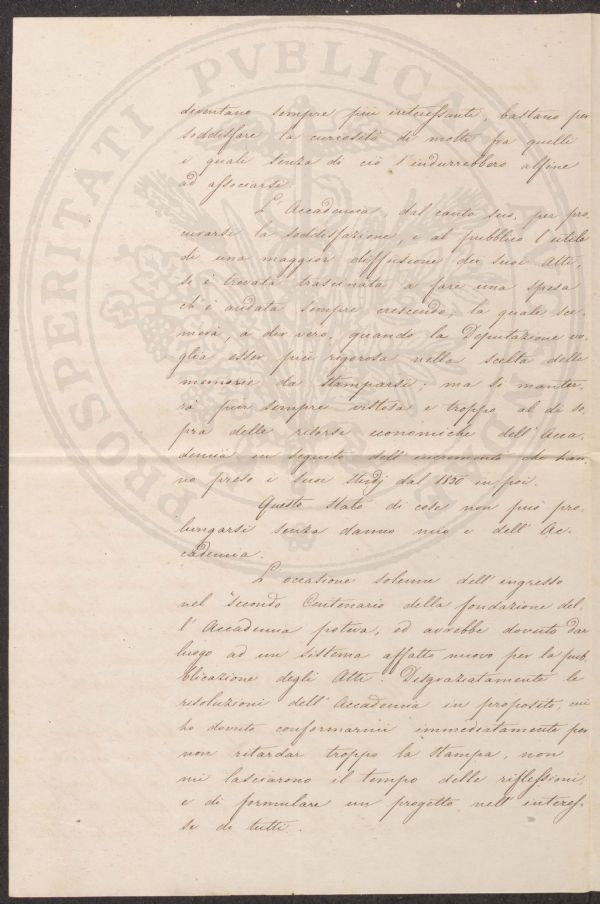 PROSPERITATI PVBLICAE
diventano sempre più interessanti, bastano per
soddisfare la curiosità di molti fra quelli
i quali senza di ciò s'indurrebbero alfine
ad associarsi.
L'Accademia, dal canto suo, per pro-
curarsi la soddisfazione, e al pubblico l'utile
di una maggior diffusione dei suoi Atti,
si è trovata trascinata a fare una spesa
ch'è andata sempre crescendo, la quale sce-
merà, a dir vero, quando la Deputazione vo-
glia esser più rigorosa nella scelta delle
memorie da stamparsi; ma si manter-
rà pur sempre vistosa e troppo al di so-
pra delle risorse economiche dell'Acca-
demia in seguito dell'incremento che han-
no preso i suoi studj dal 1850 in poi.
Questo stato di cose non può pro-
lungarsi senza danno mio e dell'Ac-
cademia.
L'occasione solenne dell'ingresso
nel secondo Centenario della fondazione del-
l'Accademia poteva, ed avrebbe dovuto dar
luogo ad un sistema affatto nuovo per la pub-
blicazione degli Atti. Disgraziatamente le
risoluzioni dell'Accademia in proposito, cui
ho dovuto conformarmi immediatamente per
non ritardar troppo la stampa, non
mi lasciarono il tempo delle riflessioni,
e di formulare un progetto nell'interes-
se di tutti.